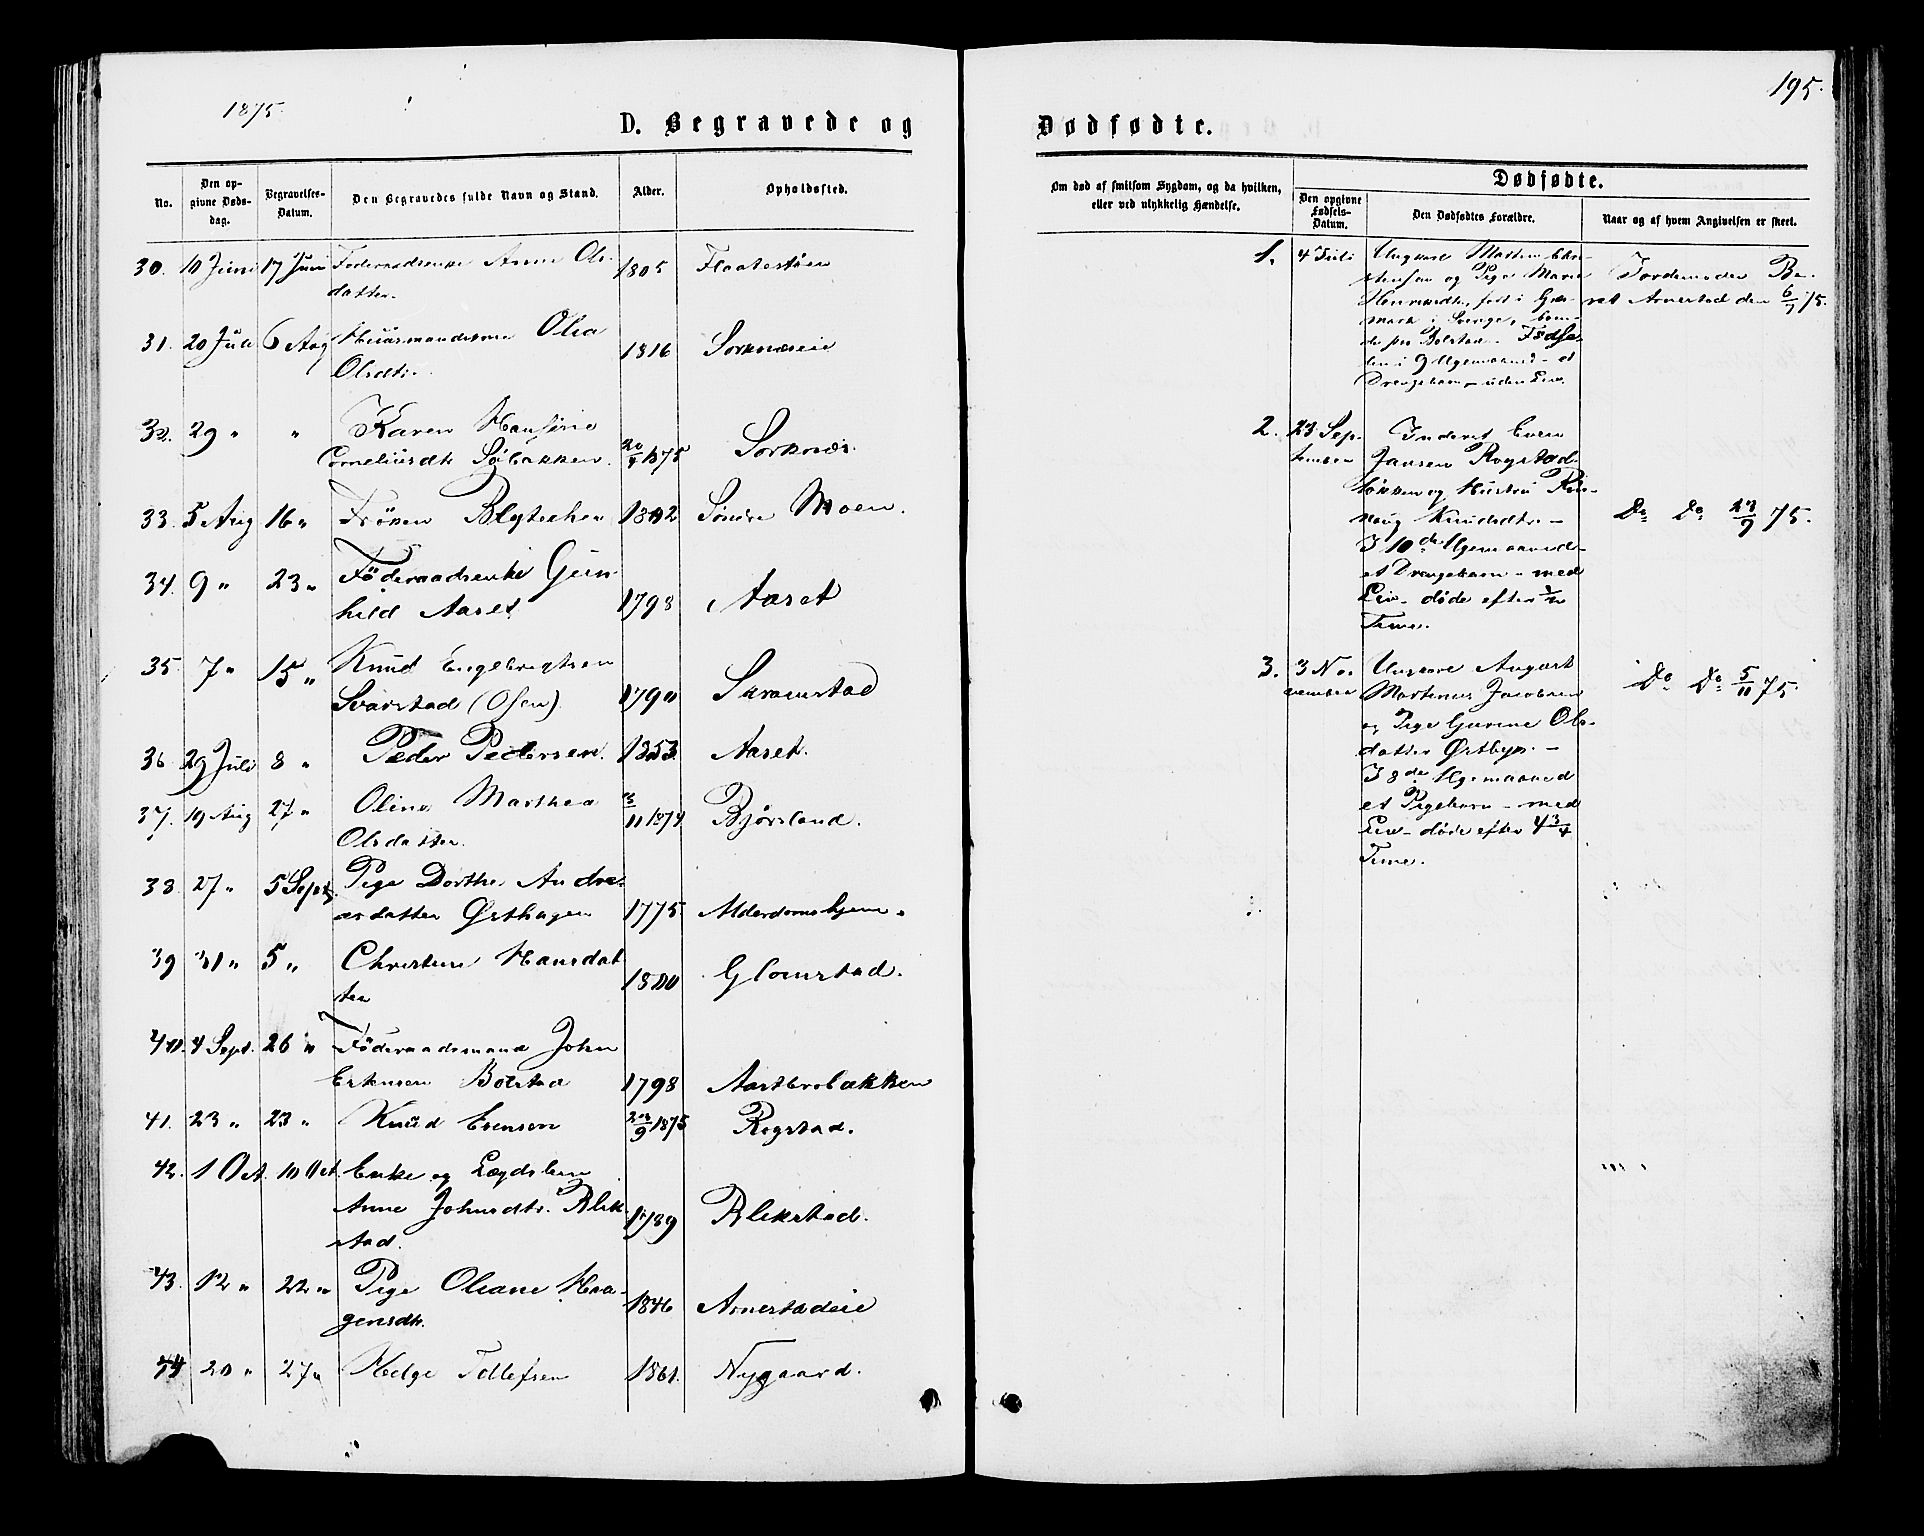 1875.
D. Begravede og
No.
Den op-
givne Døds-
dag.
Begravelses-
Datum.
Den Begravedes fulde Navn og Stand.
Alder.
Opholdssted.
30. 10 Juni 17 Juni Føderaadsenke Anne Ols-
datter. 1805 Flaatestøen
31. 20 Juli 6 Aug Huusmandskone Olea
Olsdtr. 1816 Sorknæseie
32. 29 " " Karen Hansine
Corneliusdtr Søbakken. 1875 Sorknæs.
33. 5 Aug 16 " Frøken Blytecker 1802 Søndre Moen.
34. 9 " 23 " Føderaadsenke Gun-
hild Aaset 1798 Aaset
35. 7 " 15 " Knud Engebrigtsen
Svarstad (Olsen) 1790 Skramstad
36 29 Juli 8 " Peder Pedersen. 1853. Aaset.
37. 19 Aug 27 " Oline Marthea
Olsdatter. 11 1874 Bjørsland.
38. 27 " 5 Sept. Pige Dorthe Andre-
asdatter Østhagen 1775. Alderdomshjem.
39 31 " 5 " Christine Hansdat
ter 1800 Glomstad.
40. 4 Sept. 26 " Føderaadsmand John
Estensen Bolstad 1798 Aasterobakken
41. 23 " 23 " Knud Evensen 23/9 1875 Rogstad.
42. 1 Oct. 10 Oct. Enke og Lægdslem
Anne Johnsdtr. Blik
stad. 1789 Blikstad.
43. 12 " 22 " Pige Oleane Haa-
gensdtr. 1846 Arnestadeie
44 20 " 27 " Helge Tollefsen 1861. Nygaard.
195.
Dødfødte.
Om død af smitsom Sygdom, og da hvilken,
eller ved ulykkelig Hændelse.
Dødfødte.
Den opgivne
Fødsels-
Datum.
Den Dødfødtes Forældre.
Naar og af hvem Angivelsen er skeet.
1. 4 Juli Ungkarl Morten Chri-
stensen og Pige Maren
Henriksdtr, født i
mark i Sverige, boen-
de paa Bolstad. Fødse-
len i 9 Ugemaaned - et
Drengebarn - uden Liv.
Jordemoder Be-
ret Arnestad den 6/7 75.
2. 23 Sep-
tember Inderst Even
Jansen Rogstad-
løkken og Hustru Rø-
naug Knudsdtr. -
I 10de Ugemaaned -
et Drengebarn - med
Liv - døde efter 1/2
Time.
Do Do 23/9 75.
3. 3 No-
vember Ungkarl August
Martinus Jacobsen
og Pige Gurine Ols-
datter Østbyn. -
I 8de Ugemaaned
et Pigebarn - med
Liv - døde efter 4 3/4
Time.
Do Do 5/11 75.